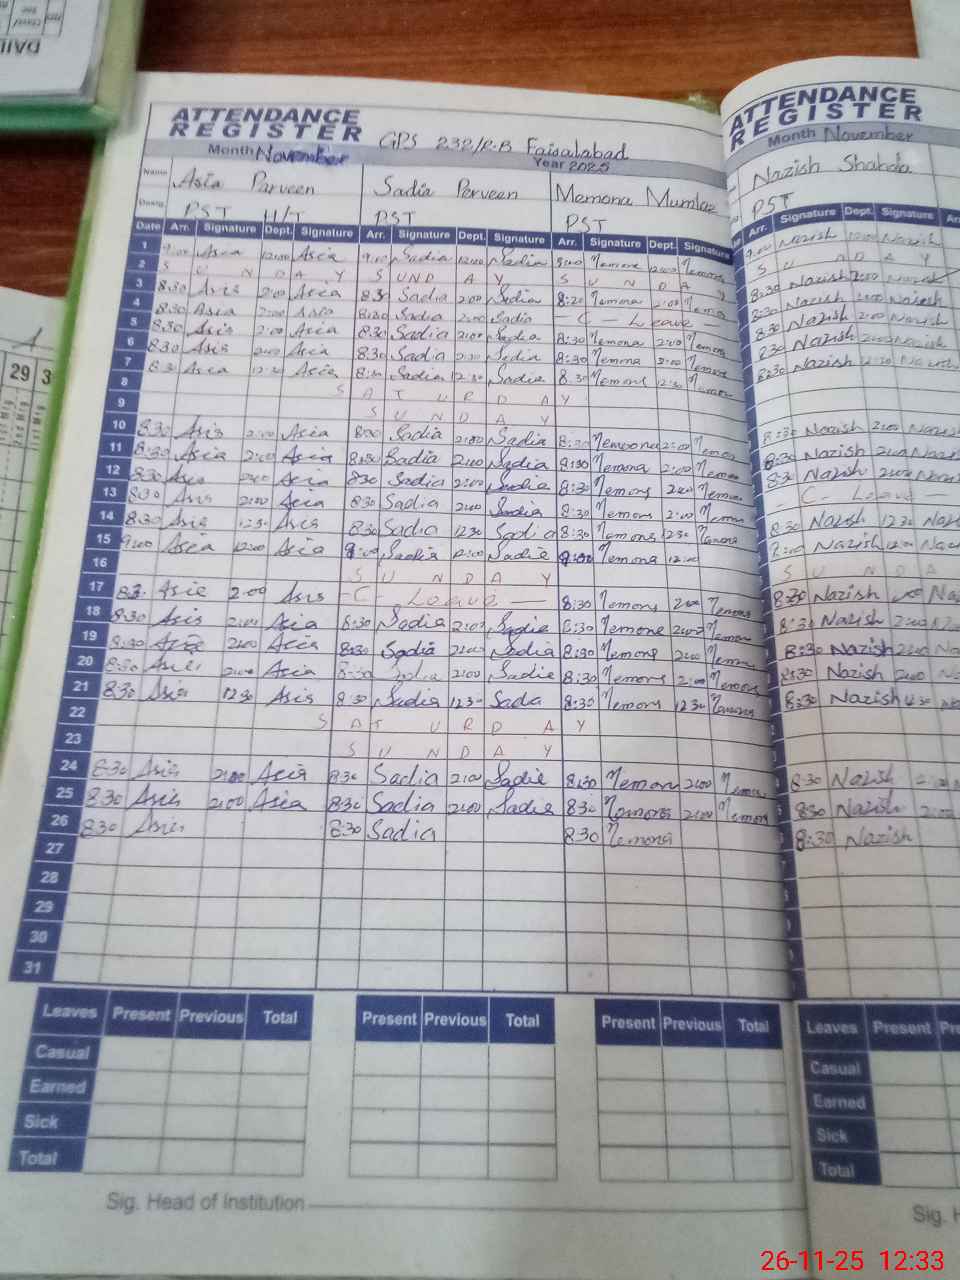 DAIL
ATTENDANCE
REGISTER
GPS 232/R-B Faisalabad
Month November
Year 2025
Name Asia Parveen Sadia Perveen Memona Mumtaz
Desig. PST H/T PST PST
Date Arr. Signature Dept. Signature Arr. Signature Dept. Signature Arr. Signature Dept. Signature
1 9:00 Asia 12:00 Asia 9:00 Sadia 12:00 Sadia 9:00 Memona 12:00 Memona
2 S U N D A Y S U N D A Y S U N D A Y
3 8:30 Asia 2:00 Asia 8:30 Sadia 2:00 Sadia 8:20 Memona 2:00 Memona
4 8:30 Asia 2:00 Asia 8:30 Sadia 2:00 Sadia - C - Leave -
5 8:30 Asia 2:00 Asia 8:30 Sadia 2:00 Sadia 8:30 Memona 2:00 Memona
6 8:30 Asia 2:00 Asia 8:30 Sadia 2:00 Sadia 8:30 Memona 2:00 Memona
7 8:30 Asia 12:30 Asia 8:30 Sadia 12:30 Sadia 8:30 Memona 12:30 Memona
8 S A T U R D A Y
9 S U N D A Y
10 8:30 Asia 2:00 Asia 8:00 Sadia 2:00 Sadia 8:30 Memoona 2:00 Memona
11 8:30 Asia 2:00 Asia 8:30 Sadia 2:00 Sadia 8:30 Memona 2:00 Memona
12 8:30 Asia 2:00 Asia 8:30 Sadia 2:00 Sadia 8:30 Memona 2:00 Memona
13 8:30 Asia 2:00 Asia 8:30 Sadia 2:00 Sadia 8:30 Memona 2:00 Memona
14 8:30 Asia 12:30 Asia 8:30 Sadia 12:30 Sadia 8:30 Memona 12:30 Memona
15 9:00 Asia 12:00 Asia 9:00 Sadia 12:00 Sadia 9:00 Memona 12:00
16 S U N D A Y
17 8:3 Asia 2:00 Asia - C - Leave - 8:30 Memona 2:00 Memona
18 8:30 Asia 2:00 Asia 8:30 Sadia 2:00 Sadia 8:30 Memona 2:00 Memona
19 8:30 Asia 2:00 Asia 8:30 Sadia 2:00 Sadia 8:30 Memona 2:00 Memona
20 8:30 Asia 2:00 Asia 8:30 Sadia 2:00 Sadia 8:30 Memona 2:00 Memona
21 8:30 Asia 12:30 Asia 8:30 Sadia 12:30 Sadia 8:30 Memona 12:30 Memona
22 S A T U R D A Y
23 S U N D A Y
24 8:30 Asia 2:00 Asia 8:30 Sadia 2:00 Sadia 8:30 Memona 2:00 Memona
25 8:30 Asia 2:00 Asia 8:30 Sadia 2:00 Sadia 8:30 Memona 2:00 Memona
26 8:30 Asia 8:30 Sadia 8:30 Memona
27
28
29
30
31
Leaves Present Previous Total Present Previous Total Present Previous Total
Casual
Earned
Sick
Total
Sig. Head of Institution
ATTENDANCE
REGISTER
Month November
Nazish Shahda
PST
Arr. Signature Dept. Signature
9:00 Nazish 12:00 Nazish
S U N D A Y
8:30 Nazish 2:00 Nazish
8:30 Nazish 2:00 Nazish
8:30 Nazish 2:00 Nazish
8:30 Nazish 2:00 Nazish
8:30 Nazish 12:30 Nazish
8:30 Nazish 2:00 Nazish
8:30 Nazish 2:00
8:30 Nazish 2:00
- C - Leave -
8:30 Nazish 12:30
9:00 Nazish 12:00
S U N D A
8:30 Nazish
8:30 Nazish 2:00
8:30 Nazish 2:00
8:30 Nazish 2:00
8:30 Nazish 12:30
8:30 Nazish 2:00
8:30 Nazish 2:00
8:30 Nazish
Leaves Present
Casual
Earned
Sick
Total
Sig.
29
1st Mtg
26-11-25 12:33